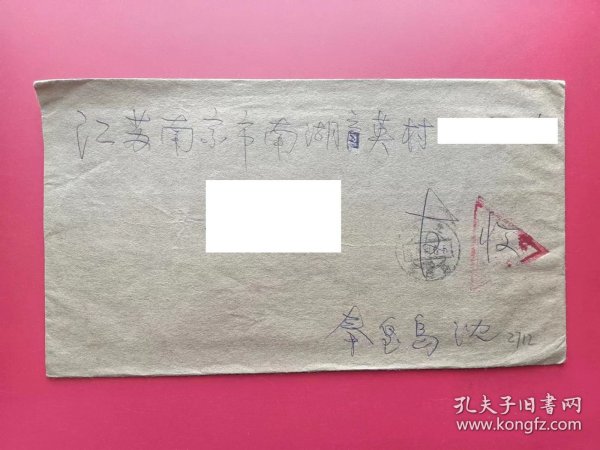 江苏南京市南湖育英村
收
秦皇岛 沈
2712
孔夫子旧书网
www.kongfz.com